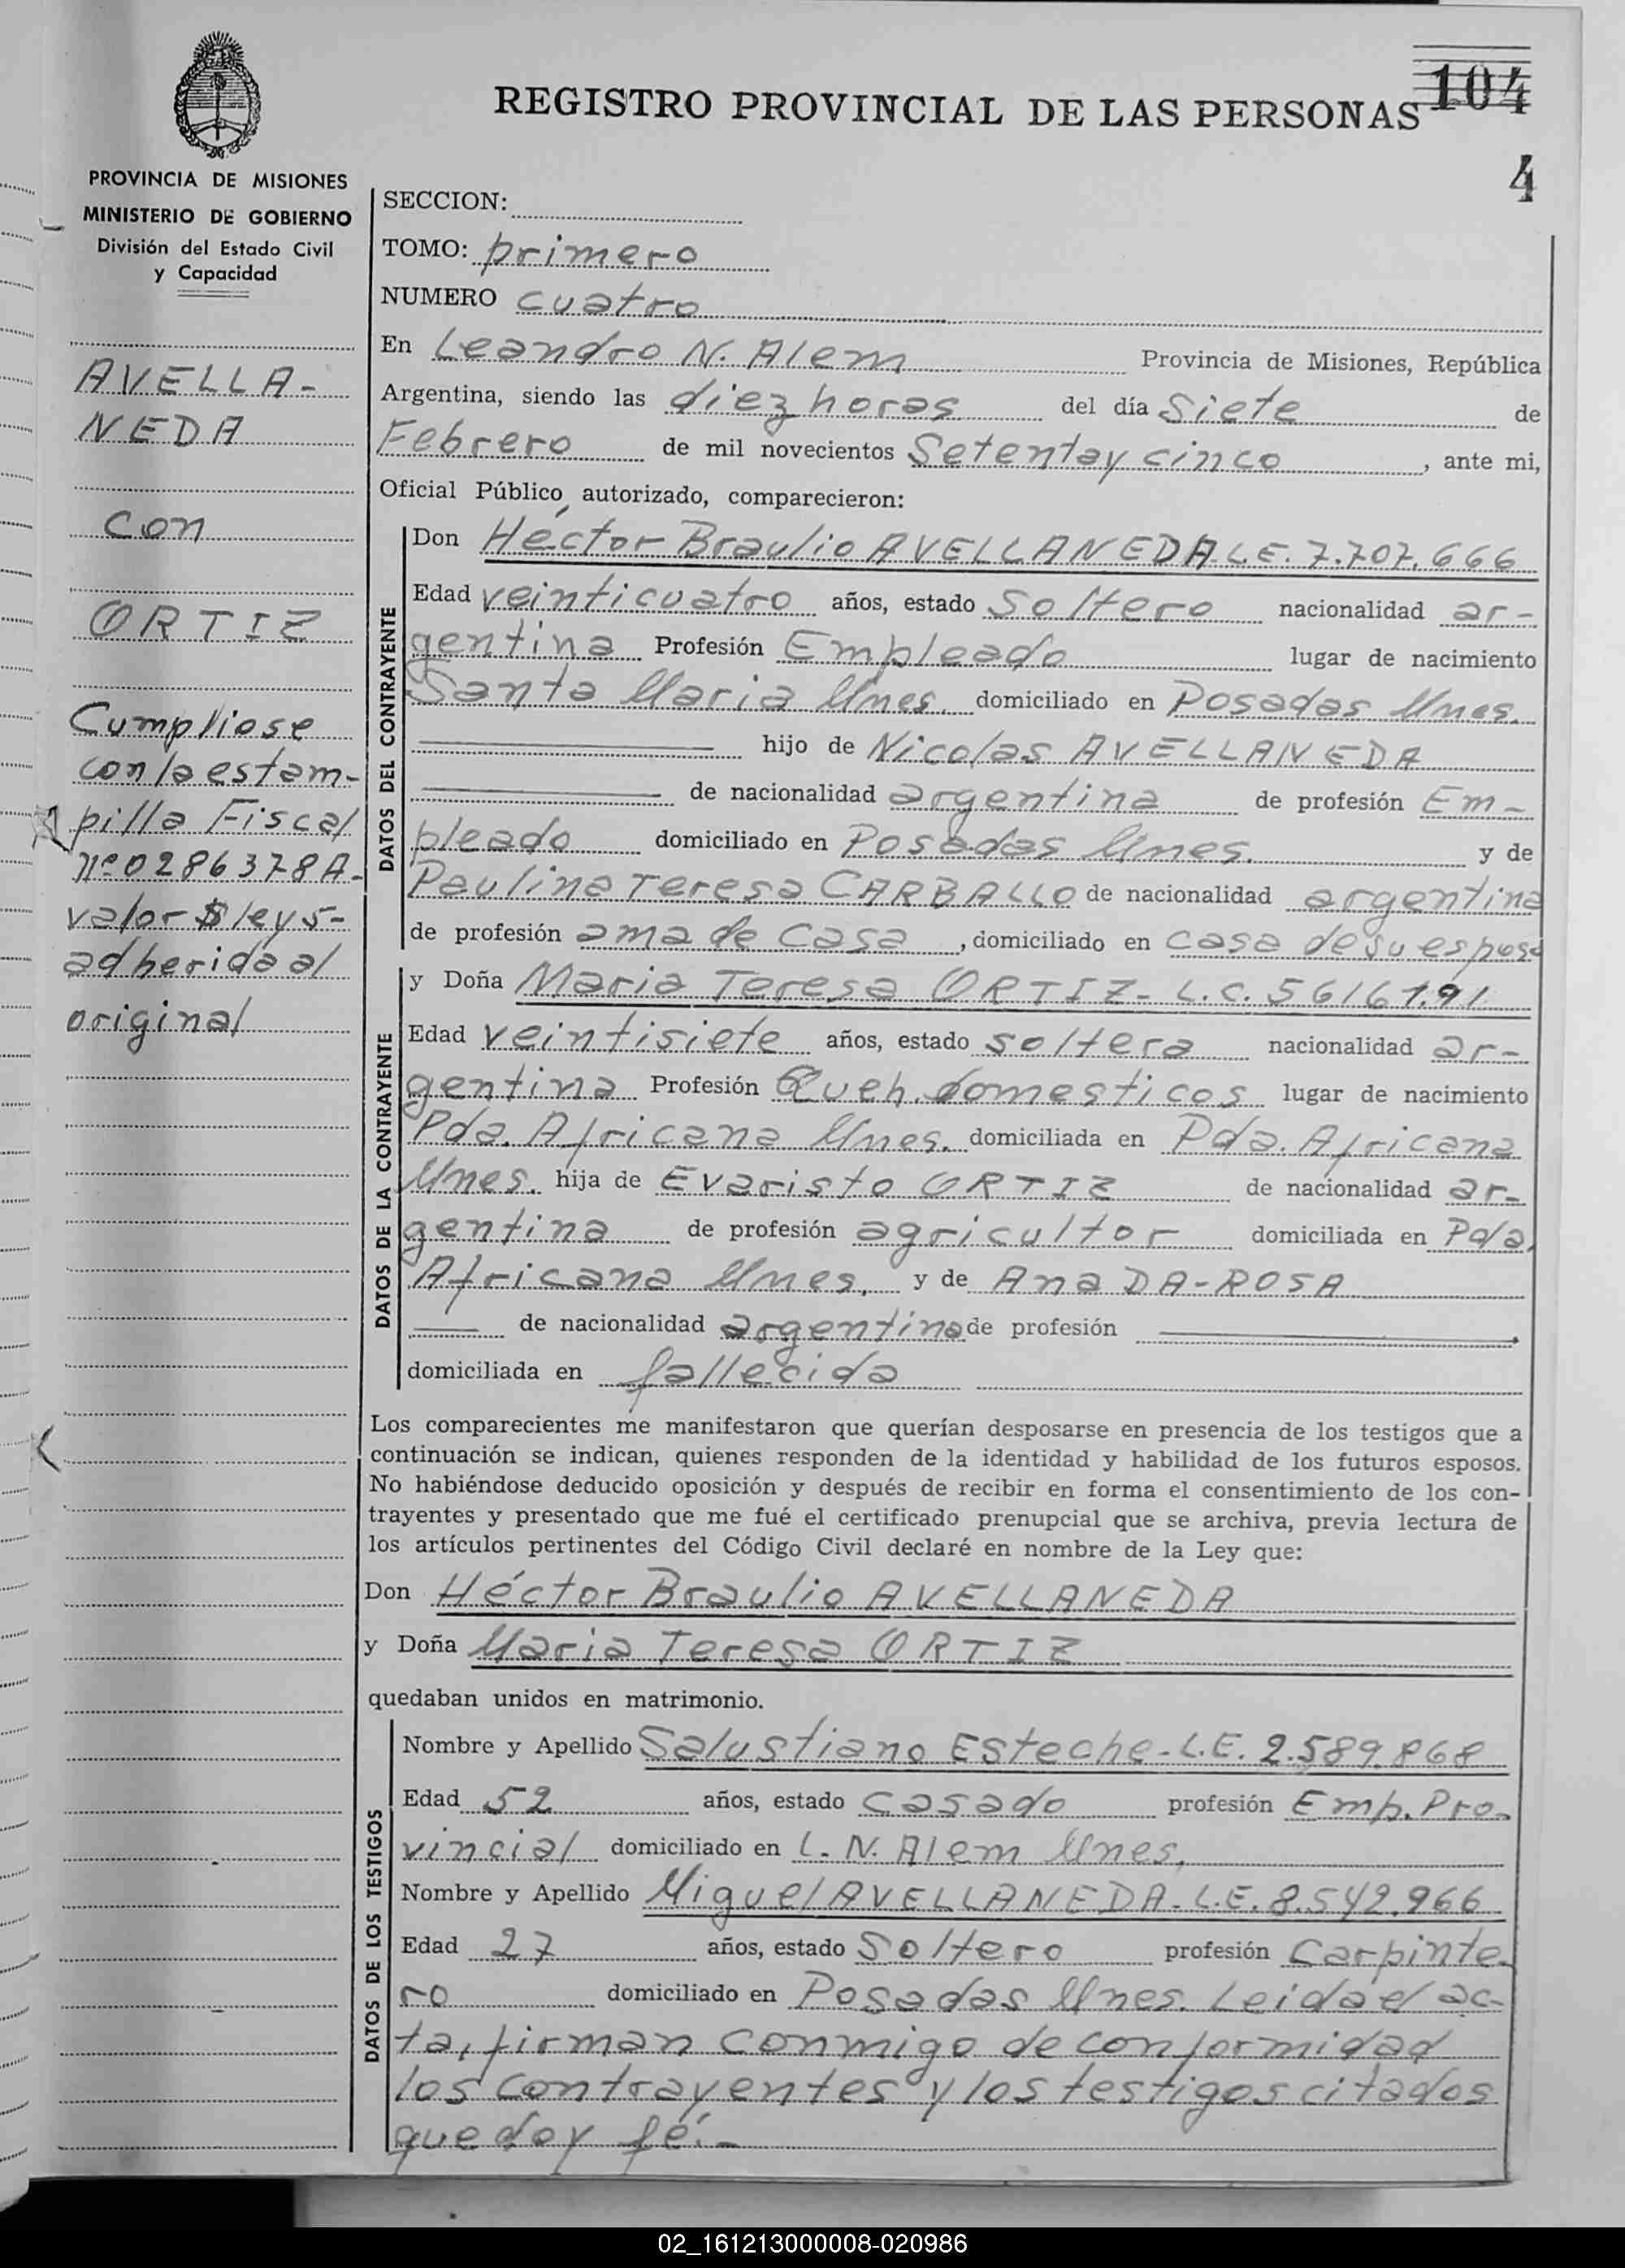 REGISTRO PROVINCIAL DE LAS PERSONAS
104
4
PROVINCIA DE MISIONES
MINISTERIO DE GOBIERNO
División del Estado Civil
y Capacidad
AVELLA-
NEDA
con
ORTIZ
Cumpliose
con la estam-
pilla Fiscal
nº 0286378A-
valor $ ley 5-
adherida al
original
SECCION:
TOMO: primero
NUMERO cuatro
En Leandro N. Alem Provincia de Misiones, República
Argentina, siendo las diez horas del día Siete de
Febrero de mil novecientos Setentay cinco, ante mi,
Oficial Público autorizado, comparecieron:
DATOS DEL CONTRAYENTE
Don Héctor Braulio AVELLANEDA-L.E. 7.707.666
Edad veinticuatro años, estado Soltero nacionalidad ar-
gentina Profesión Empleado lugar de nacimiento
Santa Maria Mnes. domiciliado en Posadas Mnes.
hijo de Nicolas AVELLANEDA
de nacionalidad argentina de profesión Em-
pleado domiciliado en Posadas Mnes. y de
Paulina Teresa CARBALLO de nacionalidad argentina
de profesión ama de casa, domiciliado en casa de su esposo
DATOS DE LA CONTRAYENTE
y Doña Maria Teresa ORTIZ- L.C. 5616191
Edad veintisiete años, estado soltera nacionalidad ar-
gentina Profesión Queh. domesticos lugar de nacimiento
Pda. Africana Mnes. domiciliada en Pda. Africana
Mnes. hija de Evaristo ORTIZ de nacionalidad ar-
gentina de profesión agricultor domiciliada en Pda.
Africana Mnes. y de Ana DA-ROSA
de nacionalidad argentina de profesión
domiciliada en fallecida
Los comparecientes me manifestaron que querían desposarse en presencia de los testigos que a
continuación se indican, quienes responden de la identidad y habilidad de los futuros esposos.
No habiéndose deducido oposición y después de recibir en forma el consentimiento de los con-
trayentes y presentado que me fué el certificado prenupcial que se archiva, previa lectura de
los artículos pertinentes del Código Civil declaré en nombre de la Ley que:
Don Héctor Braulio AVELLANEDA
y Doña Maria Teresa ORTIZ
quedaban unidos en matrimonio.
DATOS DE LOS TESTIGOS
Nombre y Apellido Salustiano Esteche-L.E. 2.589.868
Edad 52 años, estado Casado profesión Emp. Pro-
vincial domiciliado en L. N. Alem Mnes.
Nombre y Apellido Miguel AVELLANEDA-L.E. 8.542.966
Edad 27 años, estado Soltero profesión Carpinte-
ro domiciliado en Posadas Mnes. Leida el ac-
ta, firman conmigo de conformidad
los contrayentes y los testigos citados
que doy fé.-
02_161213000008-020986